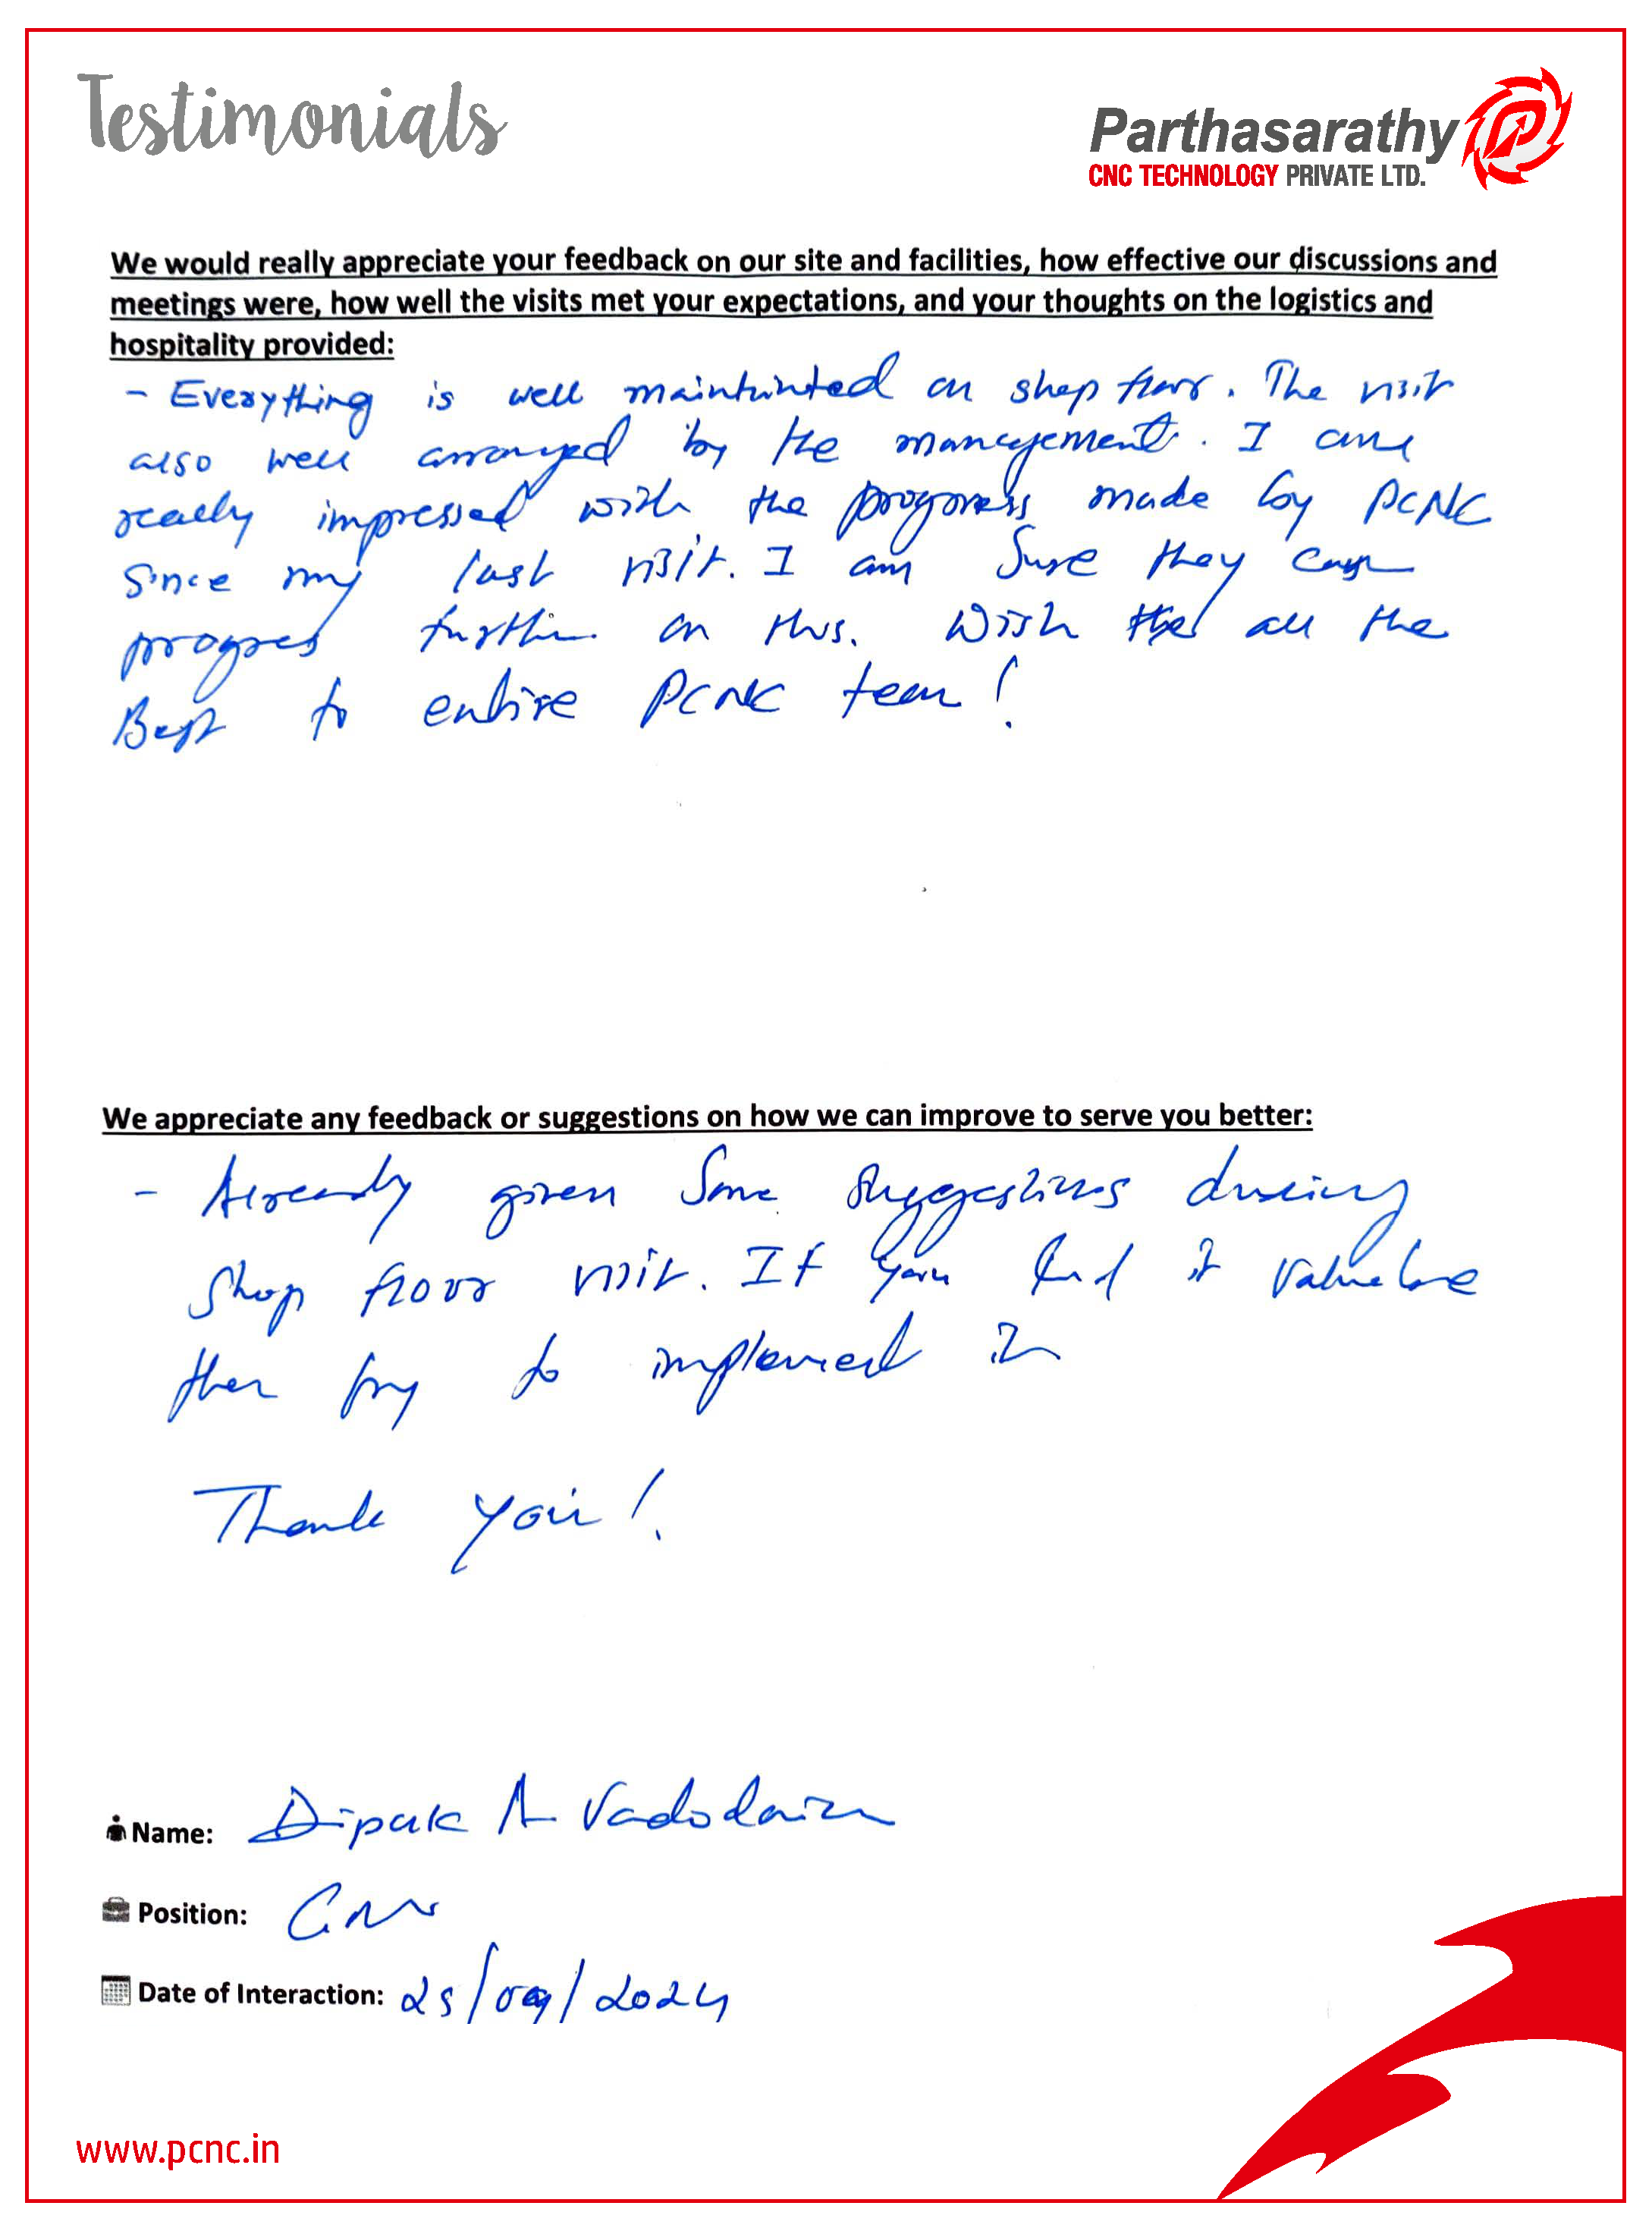 Testimonials
Parthasarathy
CNC TECHNOLOGY PRIVATE LTD.
We would really appreciate your feedback on our site and facilities, how effective our discussions and
meetings were, how well the visits met your expectations, and your thoughts on the logistics and
hospitality provided:
- Everything is well maintainted on shop floor. The visit
also well arranged by the management. I am
really impressed with the progress made by PCNC
Since my last visit. I am Sure they can
progres further on this. Wish all the
Best to entire PCNC team!
We appreciate any feedback or suggestions on how we can improve to serve you better:
- Already given Some Suggestions during
Shop floor visit. If you find it valuable
then try to implement it
Thank you!
Name: Dipak A Vadodaria
Position:
Date of Interaction: 25/09/2024
www.pcnc.in